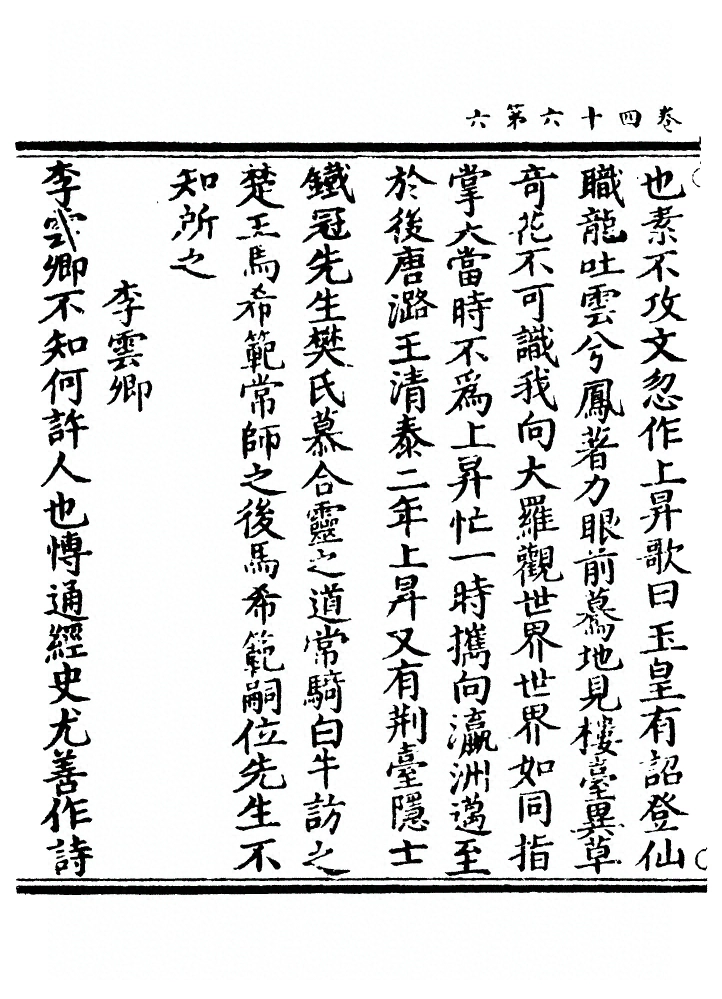 卷四十六第六
也素不攻文忽作上昇歌曰玉皇有詔登仙
職龍吐雲兮鳳著力眼前驀地見樓臺異草
奇花不可識我向大羅觀世界世界如同指
掌大當時不爲上昇忙一時攜向瀛洲邁至
於後唐潞王清泰二年上昇又有荆臺隱士
鐵冠先生樊氏慕合靈之道常騎白牛訪之
楚王馬希範常師之後馬希範嗣位先生不
知所之
李雲卿
李雲卿不知何許人也愽通經史尤善作詩